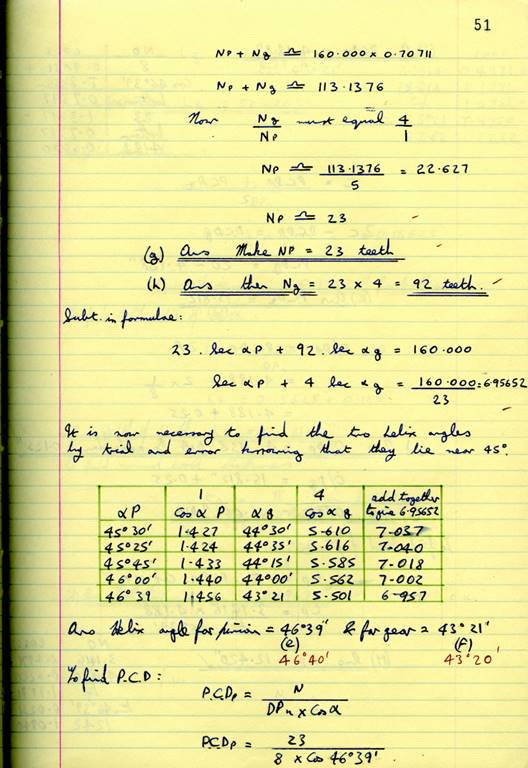 51
NP + Ng ≏ 160.000 x 0.70711
NP + Ng ≏ 113.1376
Now Ng/NP must equal 4/1
NP ≏ 113.1376/5 = 22.627
NP ≏ 23
(g) Ans Make NP = 23 teeth
(h) Ans then Ng = 23 x 4 = 92 teeth.
Subt. in formulae:
23 . Sec αP + 92. Sec αg = 160.000
Sec αP + 4 Sec αg = 160.000/23 = 6.95652
It is now necessary to find the two helix angles
by trial and error knowing that they lie near 45°.
αP 1/Cos αP αg 4/Cos αg add together to give 6.95652
45°30' 1.427 44°30' 5.610 7.037
45°25' 1.424 44°35' 5.616 7.040
45°45' 1.433 44°15' 5.585 7.018
46°00' 1.440 44°00' 5.562 7.002
46°39 1.456 43°21 5.501 6.957
Ans Helix angle for pinion = 46°39' & for gear = 43°21'
(e) (f)
46°40' 43°20'
To find P.C.D:
P.C.Dp = N/DPn x Cos α
P.C.Dp = 23/8 x Cos 46°39'